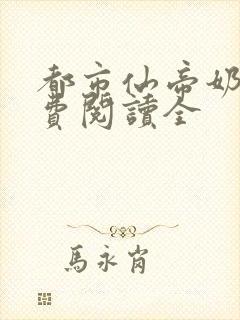 都市仙帝奶
費閱讀全
馬永肖